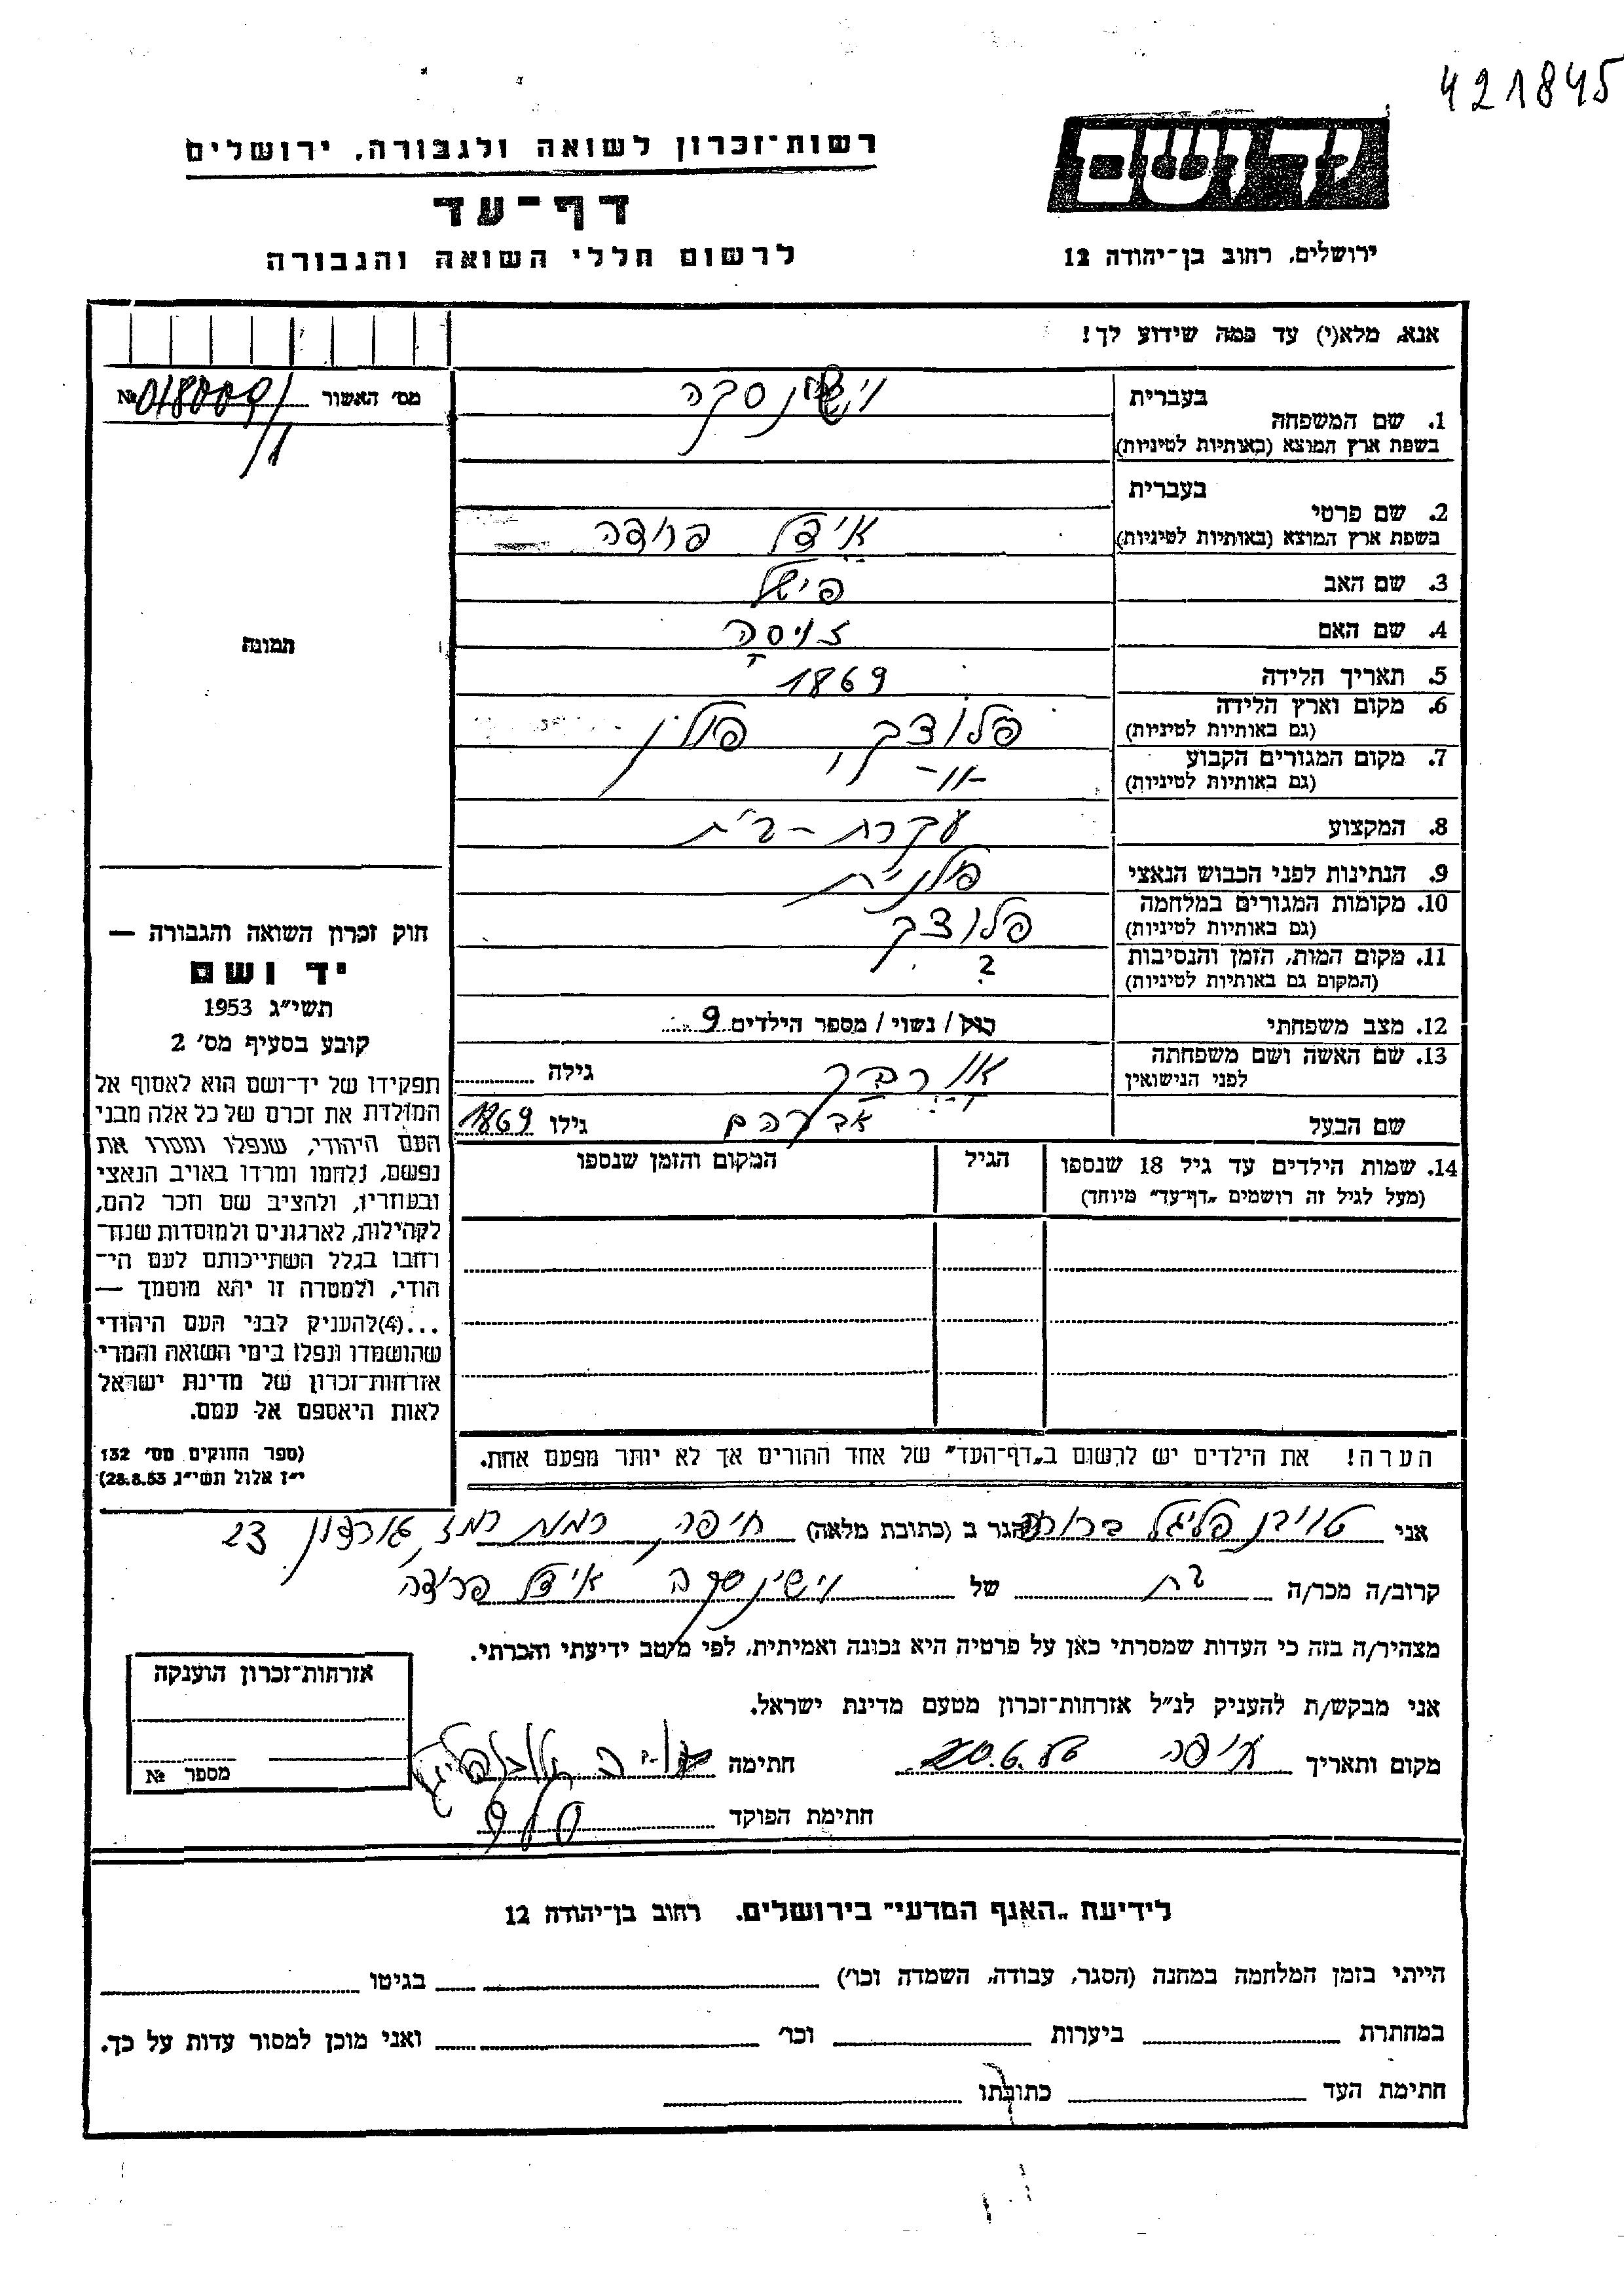 421845
יד ושם
רשות־זכרון לשואה ולגבורה, ירושלים
דף־עד
לרשום חללי השואה והגבורה
ירושלים, רחוב בן־יהודה 12
אנא, מלא(י) עד כמה שידוע לך!
מס' האשור №
1. שם המשפחה
בעברית
וישינסקה
בשפת ארץ המוצא (באותיות לטיניות)
2. שם פרטי
בעברית
בשפת ארץ המוצא (באותיות לטיניות)
אידל פרודה
3. שם האב
פישל
4. שם האם
5. תאריך הלידה
1869
6. מקום וארץ הלידה
(גם באותיות לטיניות)
פלוצק פולין
7. מקום המגורים הקבוע
(גם באותיות לטיניות)
-״-
8. המקצוע
עקרת-בית
9. הנתינות לפני הכבוש הנאצי
פולנית
10. מקומות המגורים במלחמה
(גם באותיות לטיניות)
פלוצק
11. מקום המות, הזמן והנסיבות
(המקום גם באותיות לטיניות)
?
12. מצב משפחתי
רוק / נשוי / מספר הילדים 9
13. שם האשה ושם משפחתה
לפני הנישואין
גילה
שם הבעל
אברהם
גילו 1869
14. שמות הילדים עד גיל 18 שנספו
(מעל לגיל זה רושמים „דף־עד״ מיוחד)
הגיל
המקום והזמן שנספו
הערה! את הילדים יש לרשום ב„דף־העד״ של אחד ההורים אך לא יותר מפעם אחת.
תמונה
חוק זכרון השואה והגבורה —
יד ושם
תשי״ג 1953
קובע בסעיף מס' 2
תפקידו של יד־ושם הוא לאסוף אל
המולדת את זכרם של כל אלה מבני
העם היהודי, שנפלו ומסרו את
נפשם, נלחמו ומרדו באויב הנאצי
ובעוזריו, ולהציב שם וזכר להם,
לקהילות, לארגונים ולמוסדות שנח־
רחבו בגלל השתייכותם לעם הי־
הודי, ולמטרה זו יהא מוסמך —
...(4)להעניק לבני העם היהודי
שהושמדו ונפלו בימי השואה והמרי
אזרחות־זכרון של מדינת ישראל
לאות היאספם אל עמם.
(ספר החוקים מס' 132
י״ז אלול תשי״ג 28.8.53)
אני טויבן פליגל ברורה הגר ב (כתובת מלאה) חיפה, רמת רמז, גורדון 23
קרוב/ה מכר/ה בת של וישינסקה אידל פרודה
מצהיר/ה בזה כי העדות שמסרתי כאן על פרטיה היא נכונה ואמיתית, לפי מיטב ידיעתי והכרתי.
אני מבקש/ת להעניק לנ״ל אזרחות־זכרון מטעם מדינת ישראל.
מקום ותאריך חיפה 20.6. חתימה
חתימת הפוקד
אזרחות־זכרון הוענקה
מספר №
לידיעת „האגף המדעי״ בירושלים. רחוב בן־יהודה 12
הייתי בזמן המלחמה במחנה (הסגר, עבודה, השמדה וכו') בגיטו
במחתרת ביערות וכו' ואני מוכן למסור עדות על כך.
חתימת העד כתובתו